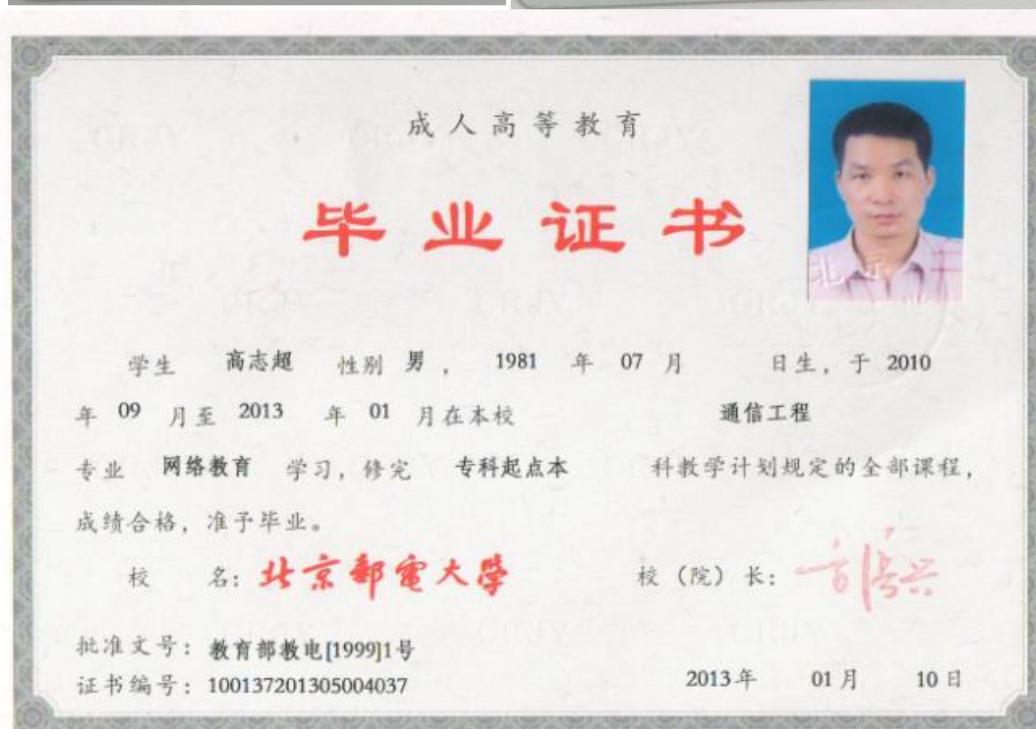 成人高等教育
毕业证书
北京
学生 高志超 性别 男, 1981 年 07 月 日生, 于 2010
年 09 月至 2013 年 01 月在本校 通信工程
专业 网络教育 学习, 修完 专科起点本 科教学计划规定的全部课程,
成绩合格, 准予毕业。
校 名: 北京邮电大学 校 (院) 长:
批准文号: 教育部教电[1999]1号
证书编号: 100137201305004037 2013 年 01 月 10 日